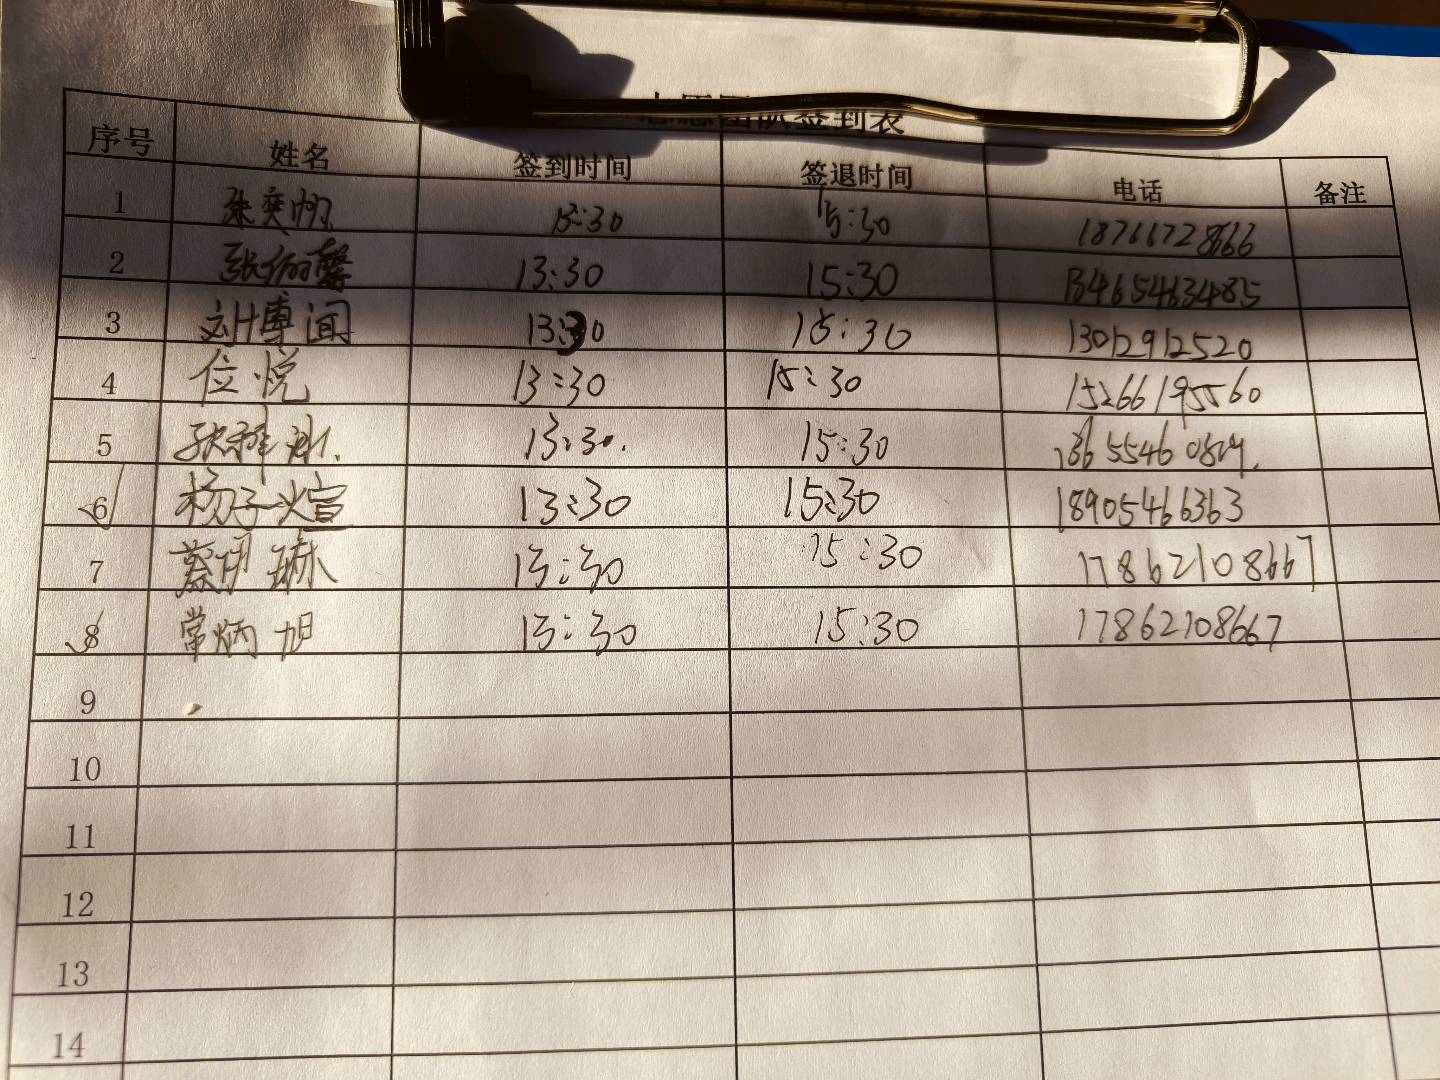 志愿团队签到表
序号 姓名 签到时间 签退时间 电话 备注
1 张奕帆 13:30 15:30 18766728666
2 张 馨 13:30 15:30 13465463485
3 刘博闻 13:30 15:30 13012912520
4 位悦 13:30 15:30 15266195560
5 张 13:30. 15:30
6 杨子煊 13:30 15:30 18905466363
7 蔡明琳 13:30 15:30 17862108667
8 常炳旭 13:30 15:30 17862108667
9
10
11
12
13
14